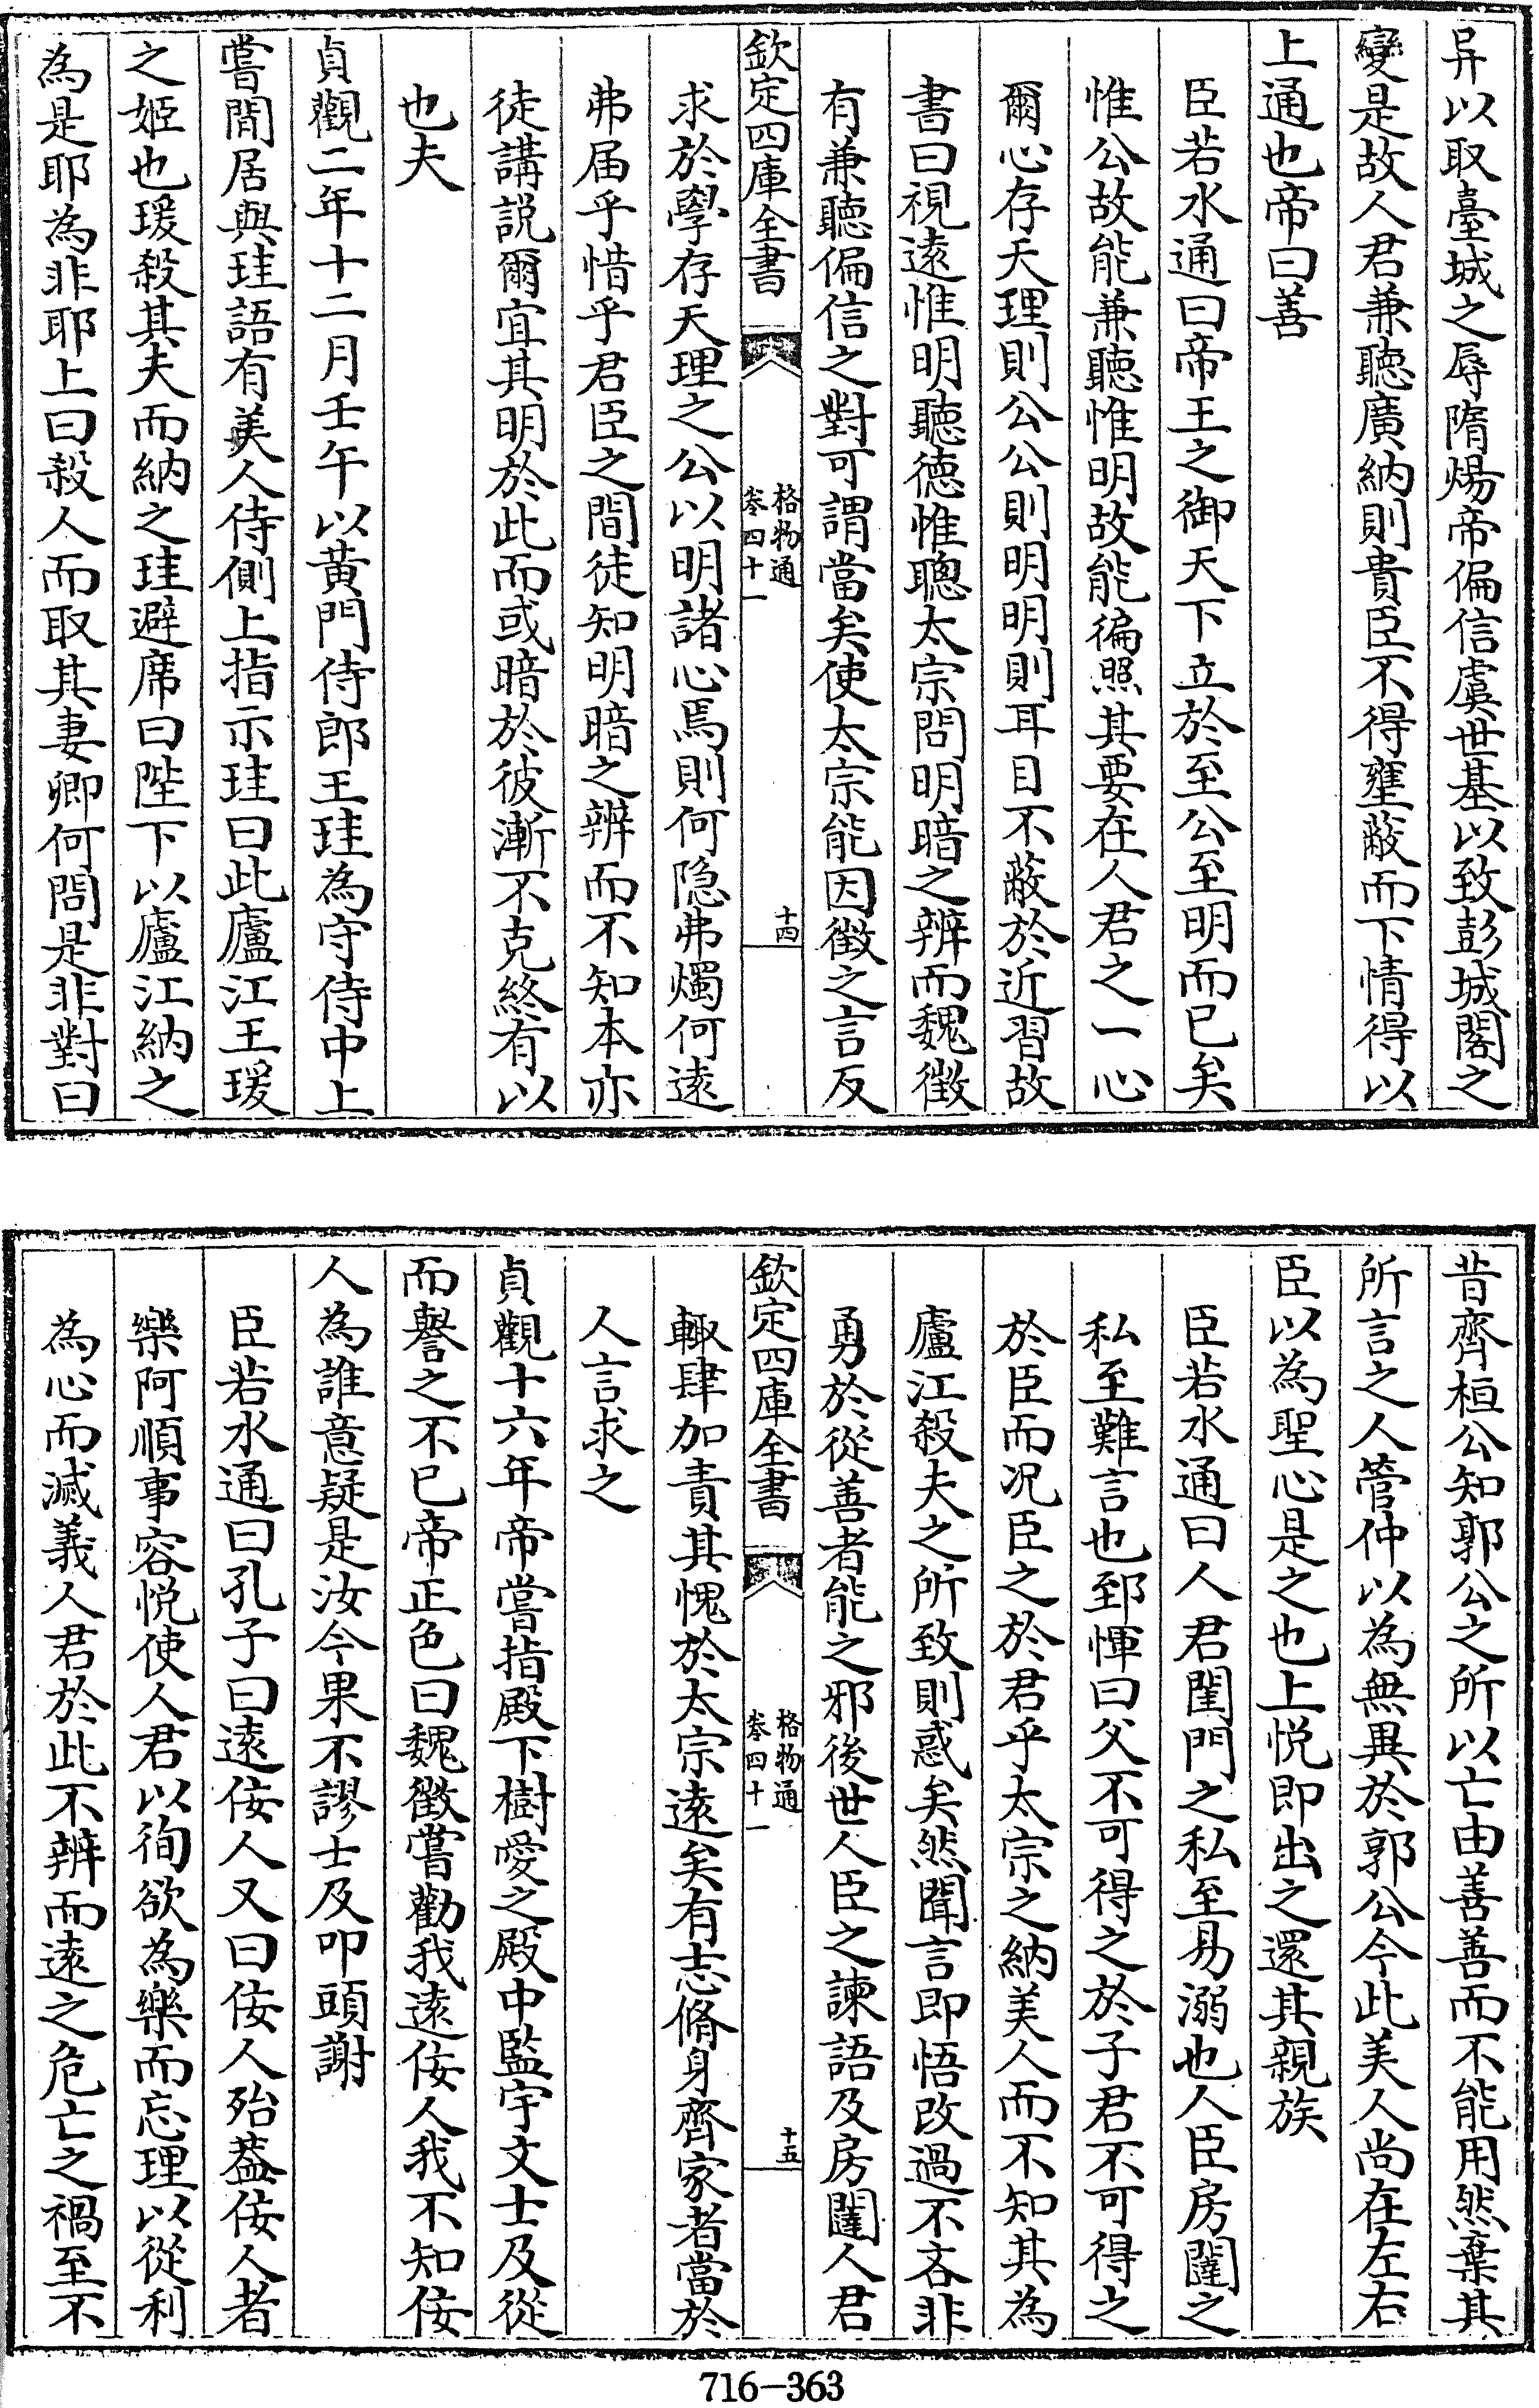 异以取臺城之辱隋煬帝偏信虞世基以致彭城閣之
變是故人君兼聽廣納則貴臣不得壅蔽而下情得以
上通也帝曰善
臣若水通曰帝王之御天下立於至公至明而已矣
惟公故能兼聽惟明故能徧照其要在人君之一心
爾心存天理則公公則明明則耳目不蔽於近習故
書曰視遠惟明聽德惟聰太宗問明暗之辨而魏徵
有兼聽偏信之對可謂當矣使太宗能因徵之言反
欽定四庫全書
格物通
卷四十一
十四
求於學存天理之公以明諸心焉則何隐弗燭何遠
弗届乎惜乎君臣之間徒知明暗之辨而不知本亦
徒講説爾宜其明於此而或暗於彼漸不克終有以
也夫
貞觀二年十二月壬午以黄門侍郎王珪為守侍中上
嘗閒居與珪語有美人侍側上指示珪曰此廬江王瑗
之姬也瑗殺其夫而納之珪避席曰陛下以廬江納之
為是耶為非耶上曰殺人而取其妻卿何問是非對曰
昔齊桓公知郭公之所以亡由善善而不能用然棄其
所言之人管仲以為無異於郭公今此美人尚在左右
臣以為聖心是之也上悦即出之還其親族
臣若水通曰人君閨門之私至易溺也人臣房闥之
私至難言也郅惲曰父不可得之於子君不可得之
於臣而况臣之於君乎太宗之納美人而不知其為
廬江殺夫之所致則惑矣然聞言即悟改過不吝非
勇於從善者能之邪後世人臣之諫語及房闥人君
欽定四庫全書
格物通
卷四十一
十五
輙肆加責其愧於太宗遠矣有志脩身齊家者當於
人言求之
貞觀十六年帝嘗指殿下樹愛之殿中監宇文士及從
而譽之不已帝正色曰魏徵嘗勸我遠佞人我不知佞
人為誰意疑是汝今果不謬士及叩頭謝
臣若水通曰孔子曰遠佞人又曰佞人殆葢佞人者
樂阿順事容悦使人君以徇欲為樂而忘理以從利
為心而滅義人君於此不辨而遠之危亡之禍至不
716-363